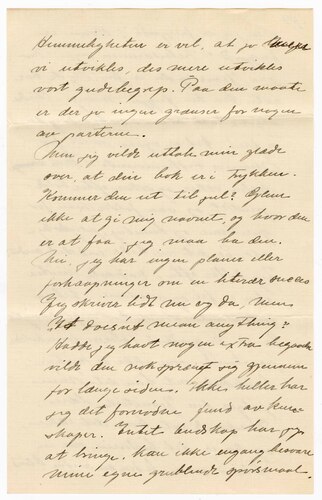 Hemmeligheten er vel, at jo
vi utvikles, des mere utvikles
vort gudsbegrep. Paa den maate
er der jo ingen grænser for nogen
av parterne.
Men jeg vilde uttale min glæde
over, at din bok er i trykken.
Kommer den ut til jul? Glem
ikke at gi mig navnet, og hvor den
er at faa. jeg maa ha den.
Nei, jeg har ingen planer eller
forhaapninger om en literær succes
Jeg skriver lidt nu og da, men
It doesn't mean anything?
Hadde jeg havt nogen extra begavelse
vilde den nok sprængt sig gjennem
for længe siden. Ikke heller har
jeg det fornødne fund av kun-
skaper. Intet budskap har jeg
at bringe. Kan ikke engang besvare
mine egne grublende spörsmaal.